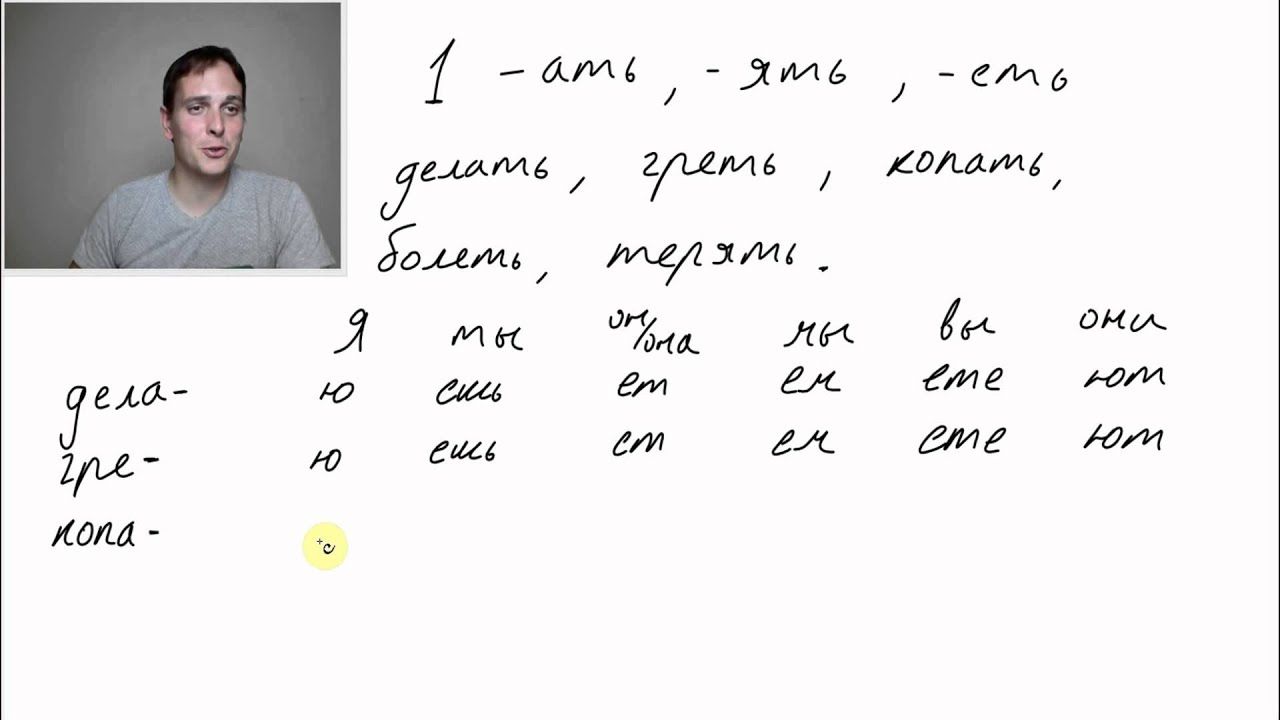 1 -ать, -ять, -еть
делать, греть, копать,
болеть, терять.
Я ты он/она мы вы они
дела- ю ешь ет ем ете ют
гре- ю ешь ет ем ете ют
копа-